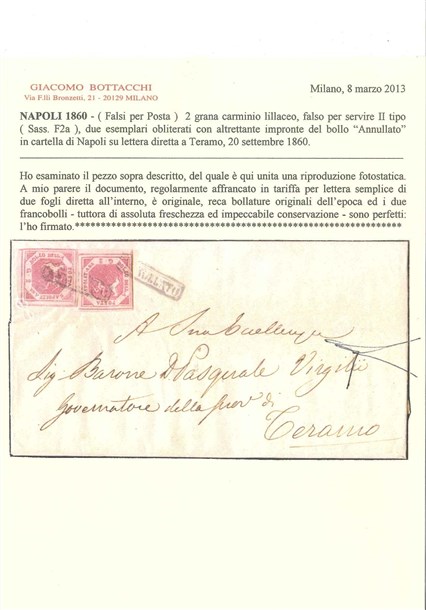 GIACOMO BOTTACCHI
Via F.lli Bronzetti, 21 - 20129 MILANO
Milano, 8 marzo 2013
NAPOLI 1860 - ( Falsi per Posta ) 2 grana carminio lillaceo, falso per servire II tipo
( Sass. F2a ), due esemplari obliterati con altrettante impronte del bollo “Annullato”
in cartella di Napoli su lettera diretta a Teramo, 20 settembre 1860.
Ho esaminato il pezzo sopra descritto, del quale è qui unita una riproduzione fotostatica.
A mio parere il documento, regolarmente affrancato in tariffa per lettera semplice di
due fogli diretta all’interno, è originale, reca bollature originali dell’epoca ed i due
francobolli - tuttora di assoluta freschezza ed impeccabile conservazione - sono perfetti:
l’ho firmato.*****************************************************************
A Sua Eccellenza
Sig Barone D Pasquale Virgilj
Governatore della Prov di
Teramo